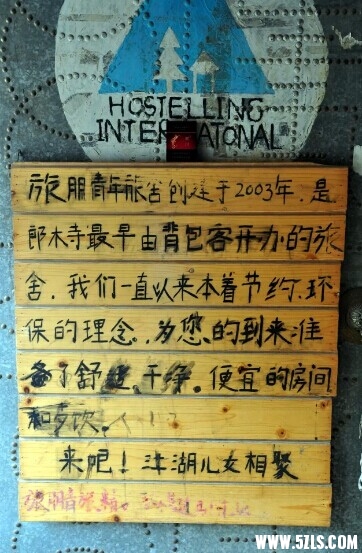 HOSTELLING
INTERNATONAL
旅朋青年旅舍创建于2003年，是
郎木寺最早由背包客开办的旅
舍，我们一直以来本着节约、环
保的理念，为您的到来准
备了舒适、干净、便宜的房间
和
来吧！江湖儿女相聚
旅朋青旅
WWW.5ZLS.COM